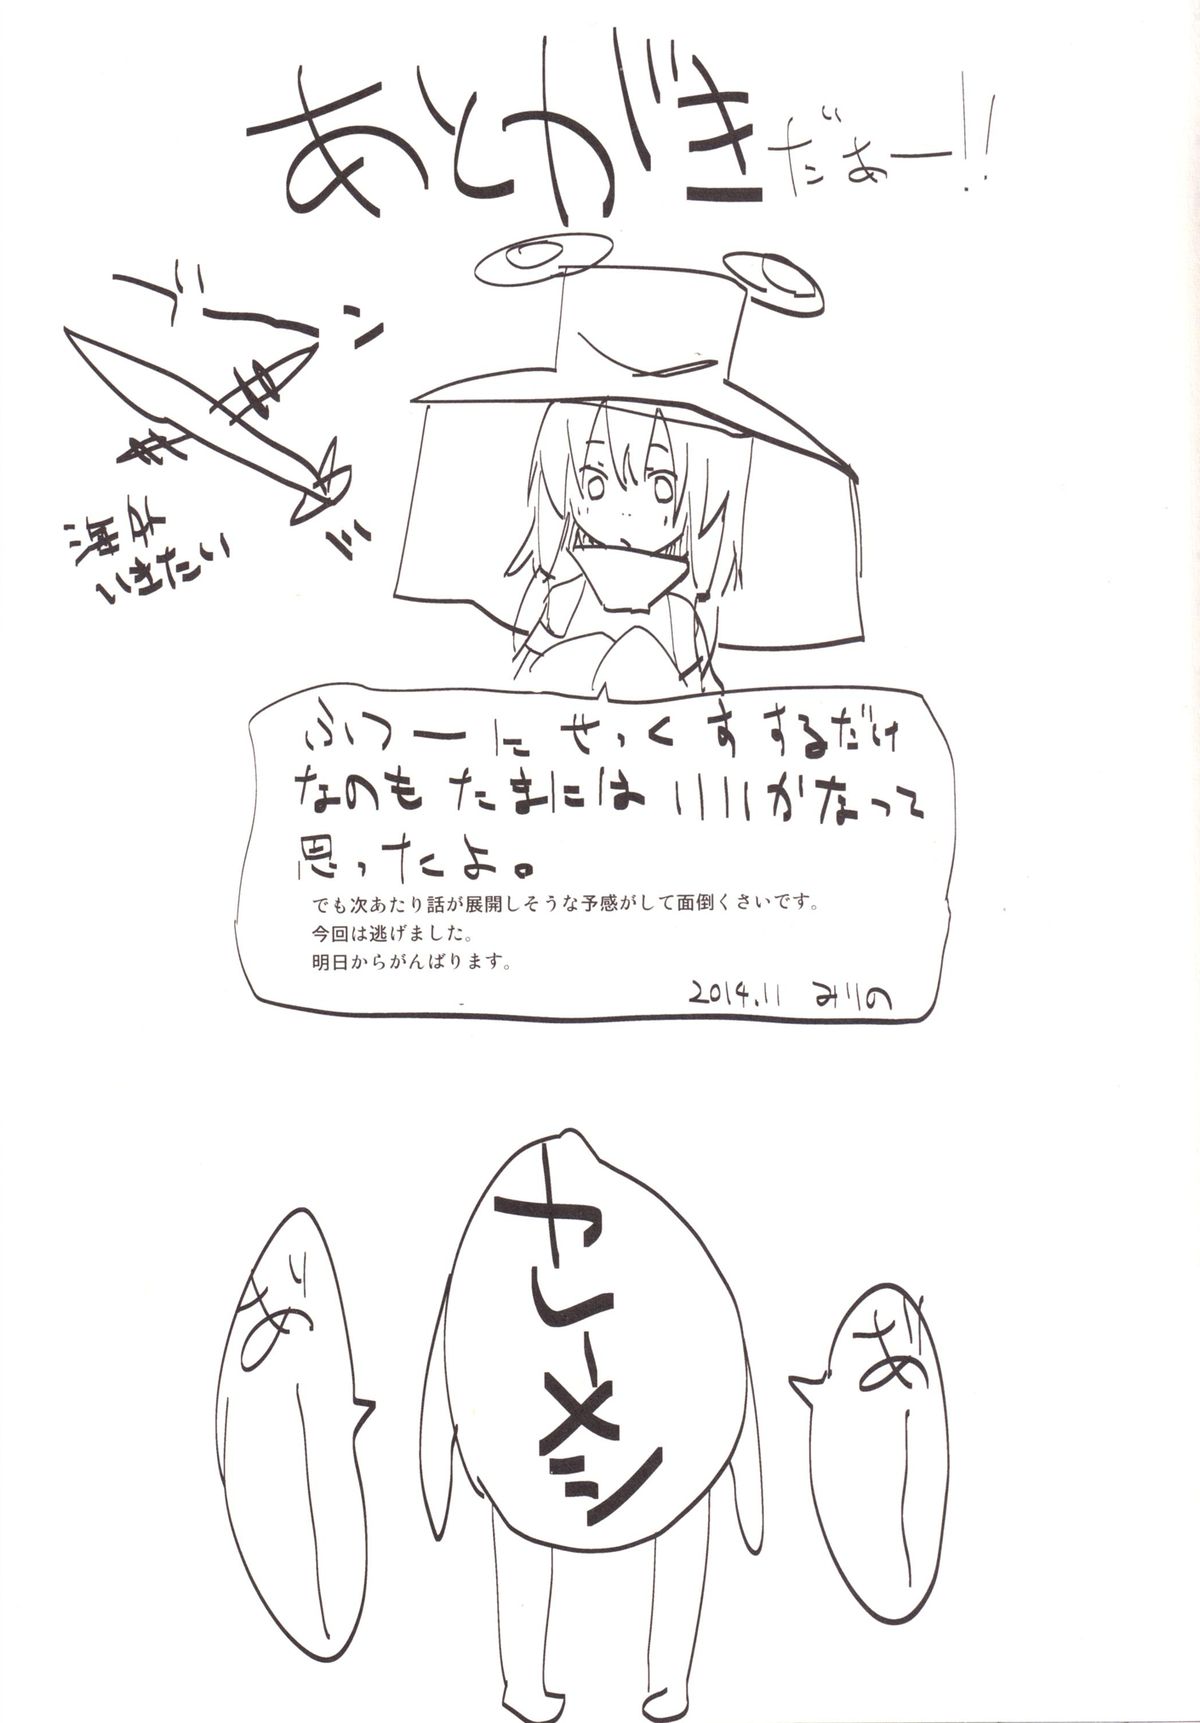 あとがきだぁー!!
ブーン
いきたい
ふつーにせっくすするだけ
なのもたまにはいいかなって
思ったよ。
でも次あたり話が展開しそうな予感がして面倒くさいです。
今回は逃げました。
明日からがんばります。
2014.11 みりの
ヤ
メシ